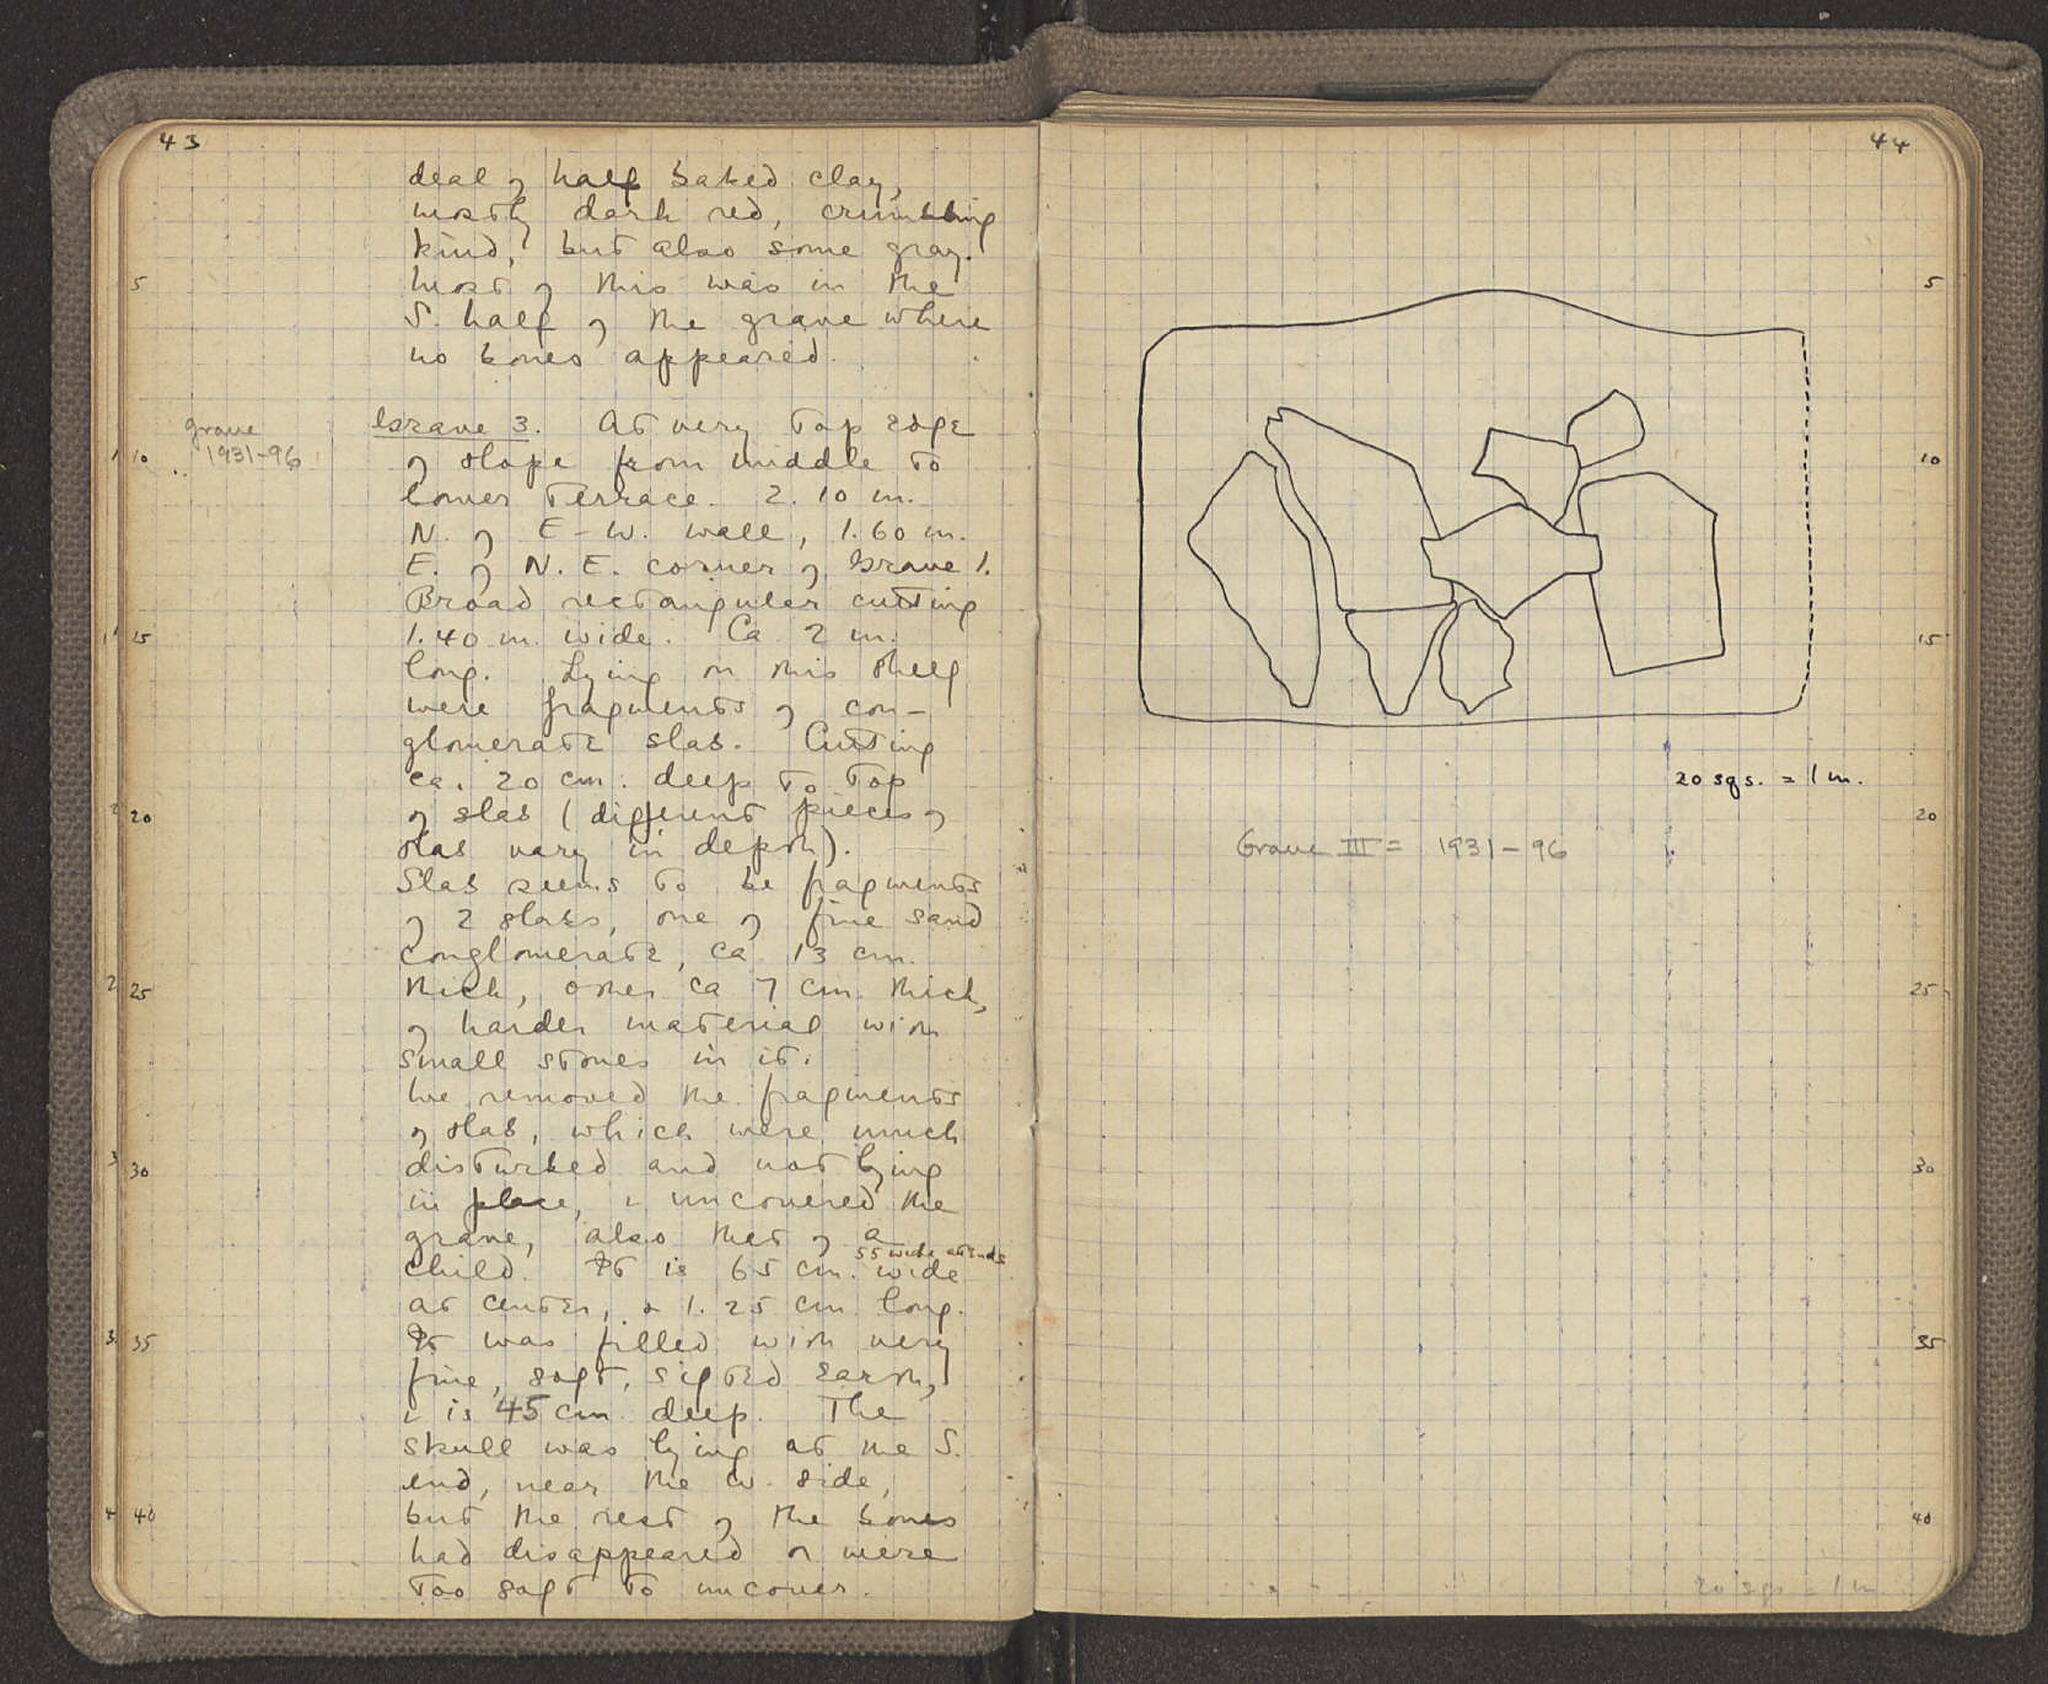 43
deal of half baked clay,
mostly dark red, crumbling
kind, but also some gray.
5
Most of this was in the
S. half of the grave where
no bones appeared.
grave
1931-96
Grave 3. At very top edge
10
of slope from middle to
lower terrace. 2.10 m.
N. of E-W. wall, 1.60 m.
E. of N.E. corner of Grave 1.
Broad rectangular cutting
15
1.40 m. wide. Ca 2 m.
long. Lying on this shelf
were fragments of con-
glomerate slab. Cutting
ca. 20 cm. deep to top
20
of slab (different pieces of
slab vary in depth).
Slab seems to be fragments
of 2 slabs, one of fine sand
conglomerate, ca 13 cm.
25
thick, other ca 7 cm thick,
of harder material with
small stones in it.
We removed the fragments
of slab, which were much
30
disturbed and not lying
in place, & uncovered the
grave, also that of a
55 wide at ends
child. It is 65 cm. wide
at center, & 1.25 cm long.
35
It was filled with very
fine, soft, sifted earth,
& is 45 cm deep. The
skull was lying at the S.
end, near the W. side,
40
but the rest of the bones
had disappeared or were
too soft to uncover.
44
5
10
15
20 sqs. = 1 m.
20
Grave III = 1931-96
25
30
35
40
20 sqs = 1 m